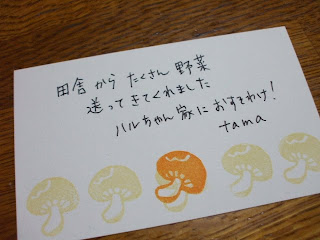 田舎から たくさん 野菜
送ってきてくれました
ハルちゃん家におすそわけ!
tama